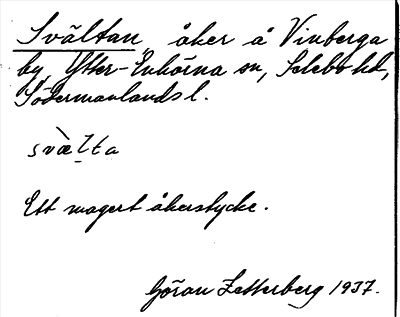 Svältan, åker å Vinberga
by, Ytter-Enhörna sn, Selebo hd,
Södermanlands l.
svæ̀l̠ta
Ett magert åkerstycke.
Göran Zetterberg 1937.